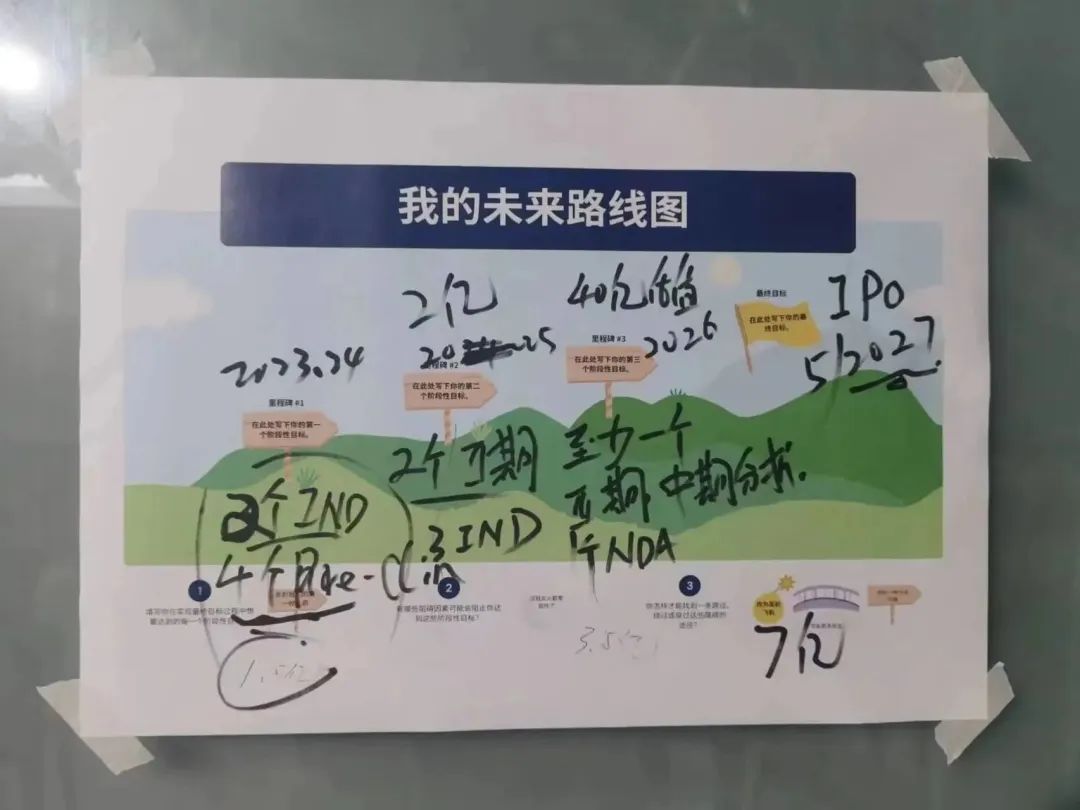 我的未来路线图
2亿
40亿估值
IPO
最终目标
在此处写下你的最
终目标。
5/2027
2023.24
25
2026
里程碑 #1
在此处写下你的第一
个阶段性目标。
里程碑 #2
在此处写下你的第二
个阶段性目标。
里程碑 #3
在此处写下你的第三
个阶段性目标。
2个IND
4个Pre-clin
2个II期
3 IND
至少一个
III期中期分析.
1个NDA
1
填写你在实现最终目标过程中想
要达到的每一个阶段性目
2
有哪些阻碍因素可能会阻止你达
到这些阶段性目标?
3
你怎样才能找到一条路过、
绕过或穿过这些障碍的
途径?
1.5亿
3.5亿
7亿